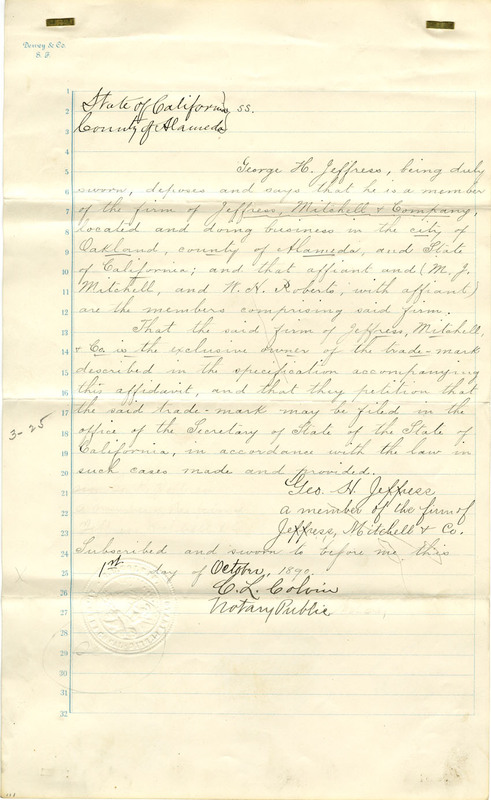 Dewey & Co.
S. F.
1
2
3
4
5
6
7
8
9
10
11
12
13
14
15
16
17
18
19
20
21
22
23
24
25
26
27
28
29
30
31
32
State of California } ss.
County of Alameda }
George H. Jeffress, being duly
sworn, deposes and says that he is a member
of the firm of Jeffress, Mitchell & Company,
located and doing business in the city of
Oakland, county of Alameda, and State
of California; and that affiant and (M. J.
Mitchell, and W. H. Roberts, with affiant)
are the members comprising said firm.
That the said firm of Jeffress, Mitchell,
& Co. is the exclusive owner of the trade-mark
described in the specification accompanying
this affidavit, and that they petition that
the said trade-mark may be filed in the
office of the Secretary of State of the State of
California, in accordance with the law in
such cases made and provided.
3-25
Geo. H. Jeffress
a member of the firm of
Jeffress, Mitchell & Co.
Subscribed and sworn to before me this
1st day of October, 1890.
C. L. Colvin
Notary Public